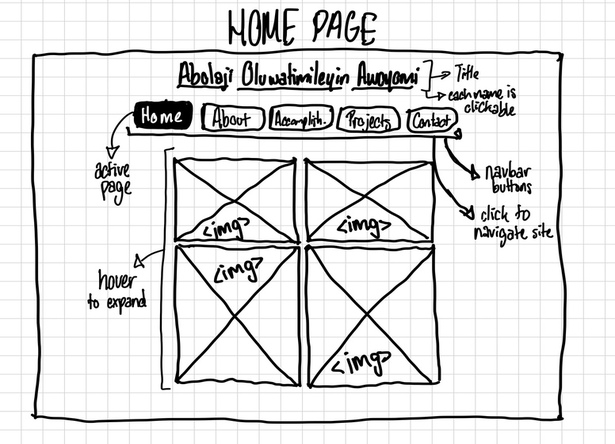 HOME PAGE
Abolaji Oluwatimileyin Awoyomi
Title
each name is
clickable
Home
About
Accomplish.
Projects
Contact
active
page
navbar
buttons
click to
navigate site
<img>
<img>
hover
to expand
<img>
<img>